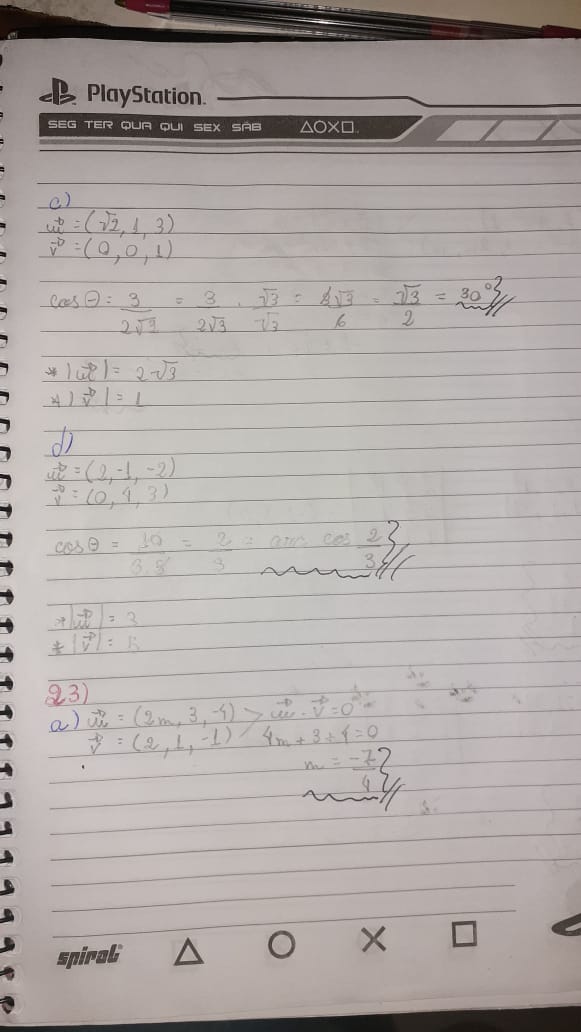 PlayStation
SEG TER QUA QUI SEX SÁB △○X□
c)
u⃗ = (√2, 1, 3)
v⃗ = (0, 0, 1)
cos θ = 3/2√3 = 3/2√3 . √3/√3 = 3√3/6 = √3/2 = 30°
* |u⃗| = 2√3
* |v⃗| = 1
d)
u⃗ = (2, -1, -2)
v⃗ = (0, 4, 3)
cos θ = 10/3.5 = 2/3 = arc cos 2/3
* |u⃗| = 3
* |v⃗| = 5
23)
a) u⃗ = (2m, 3, -4) > u⃗ . v⃗ = 0
v⃗ = (2, 1, -1) 4m + 3 + 4 = 0
m = -7/4
spiral △ ○ X □